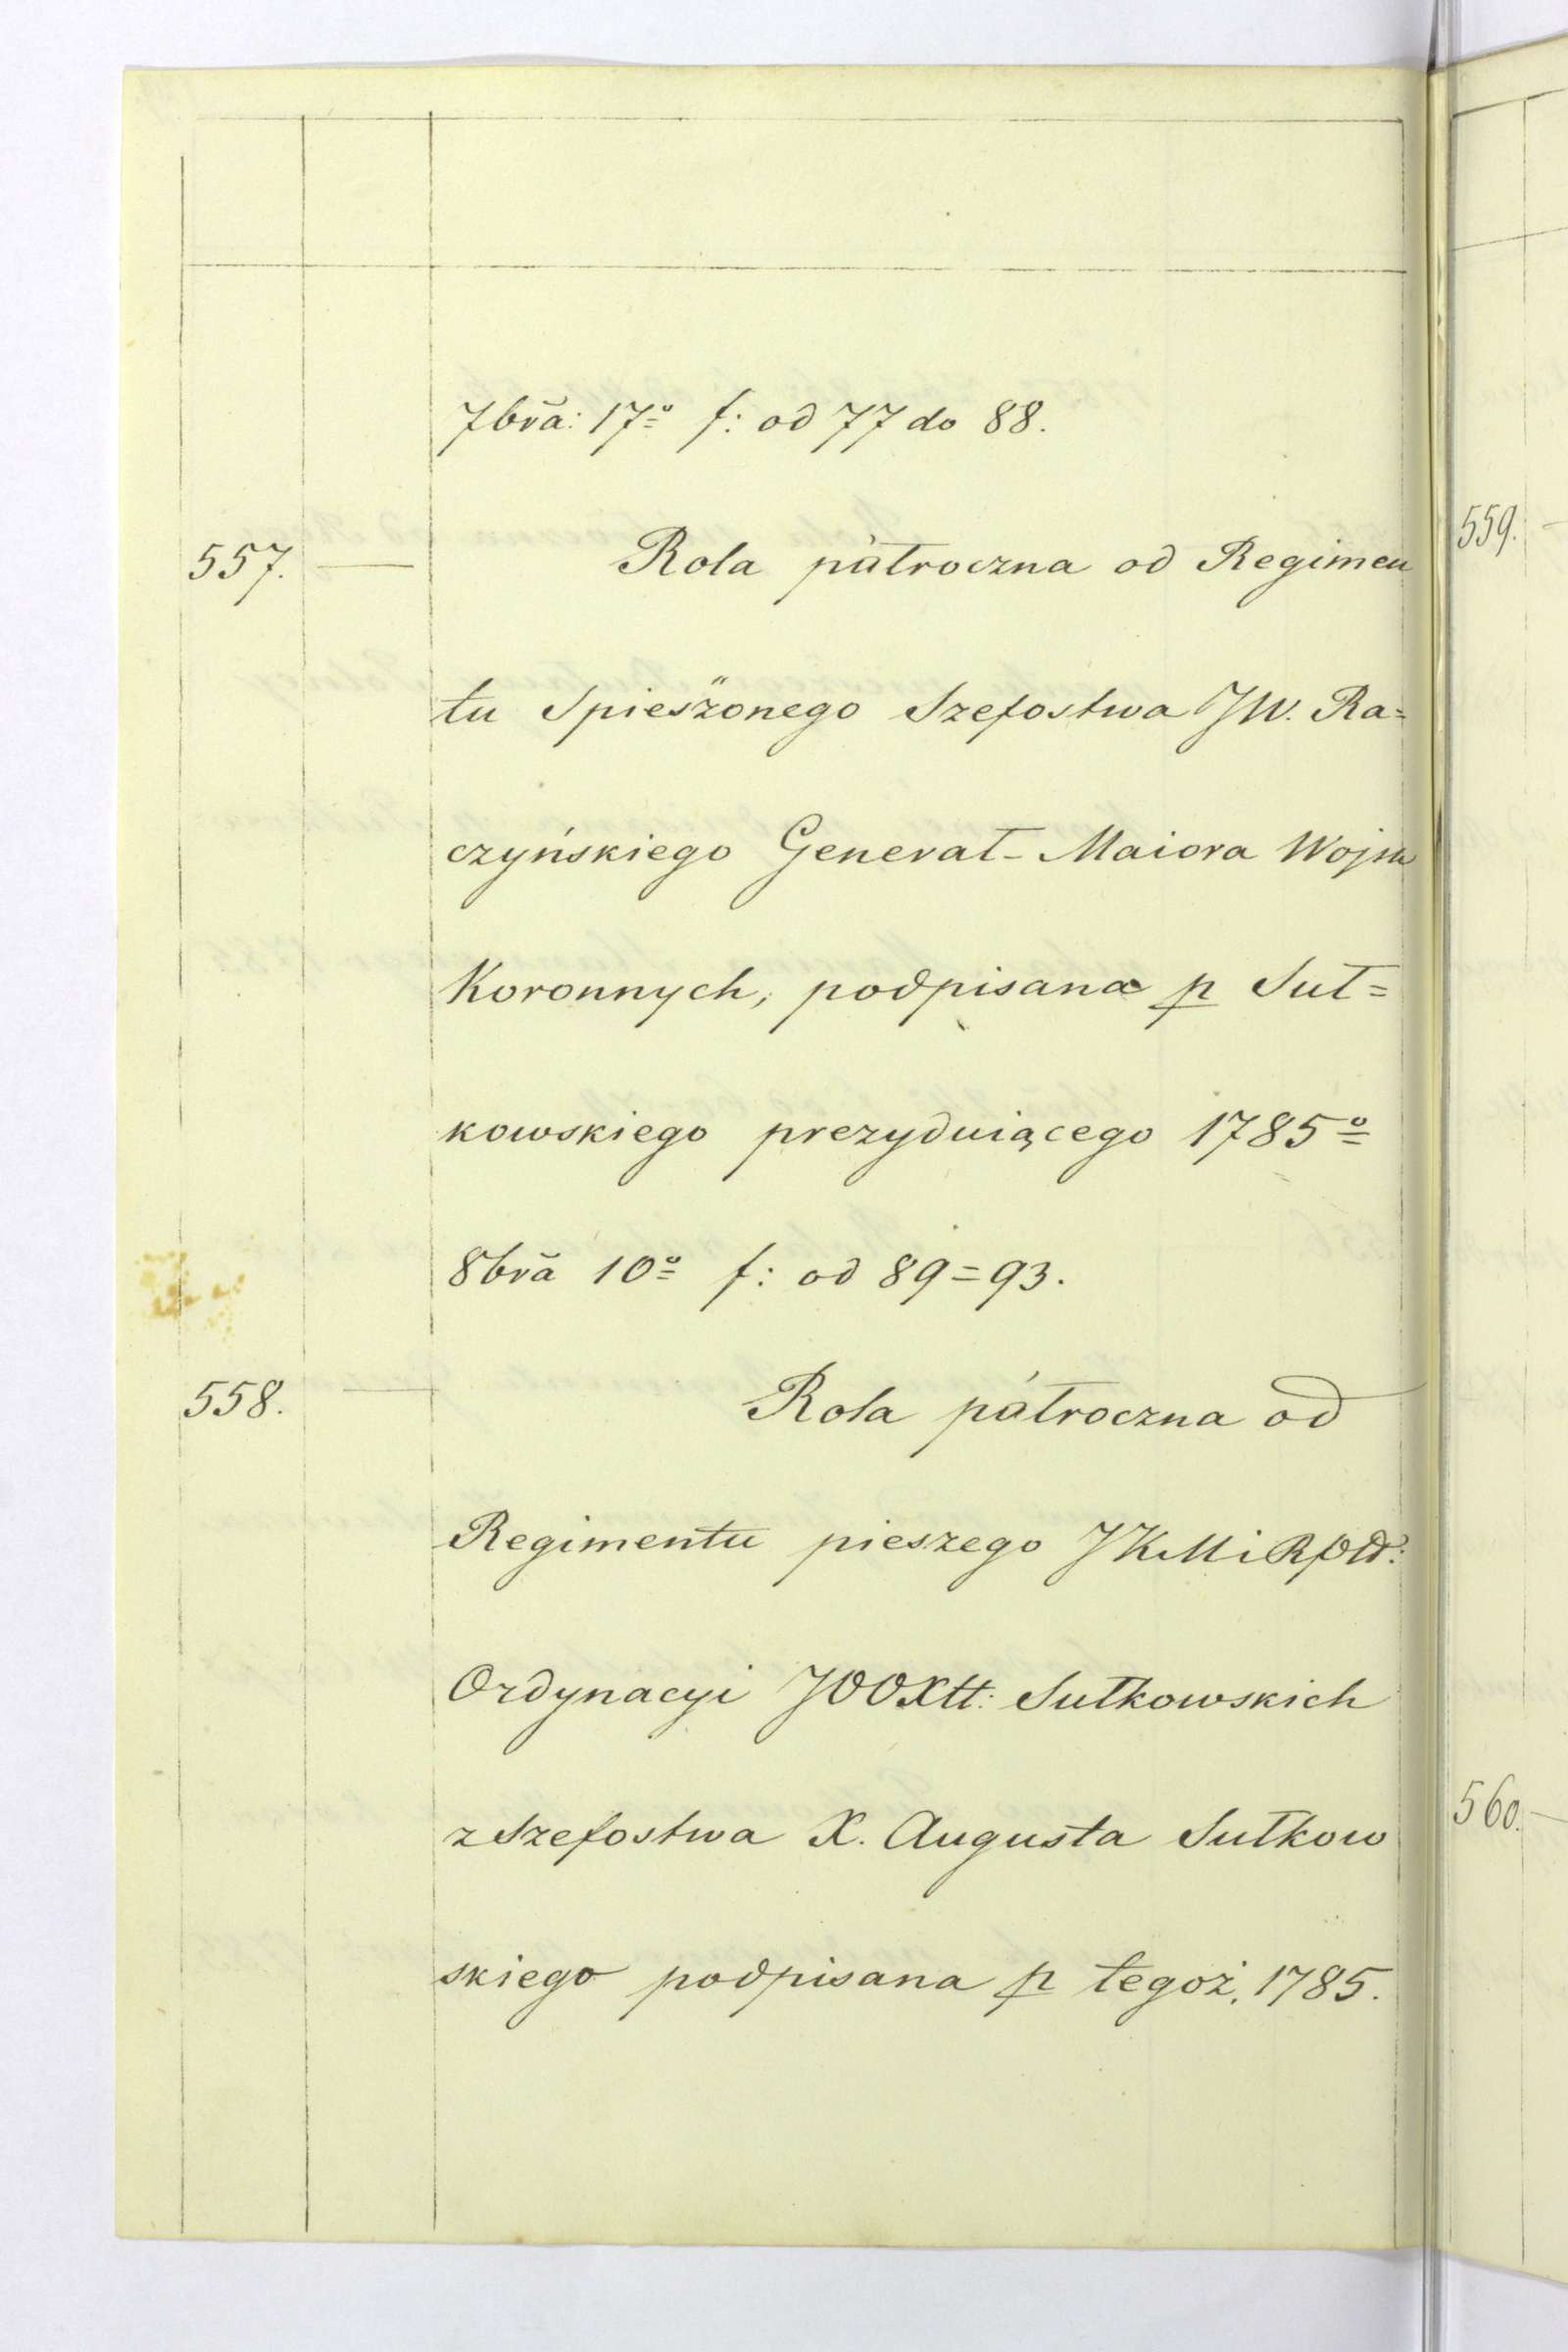 7brã: 17º f: od 77 do 88.
557. — Rola pułroczna od Regimen
tu Spieszonego Szefostwa JW. Ra=
czyńskiego Generał- Maiora Wojsk
Koronnych, podpisana p Suł=
kowskiego prezyduiącego 1785º
8brã 10º f: od 89=93.
558. — Rola pułroczna od
Regimentu pieszego JKMi
Ordynacyi JOOXtt: Sułkowskich
z Szefostwa X. Augusta Sułkow
skiego podpisana p tegoż, 1785.
559.
560.